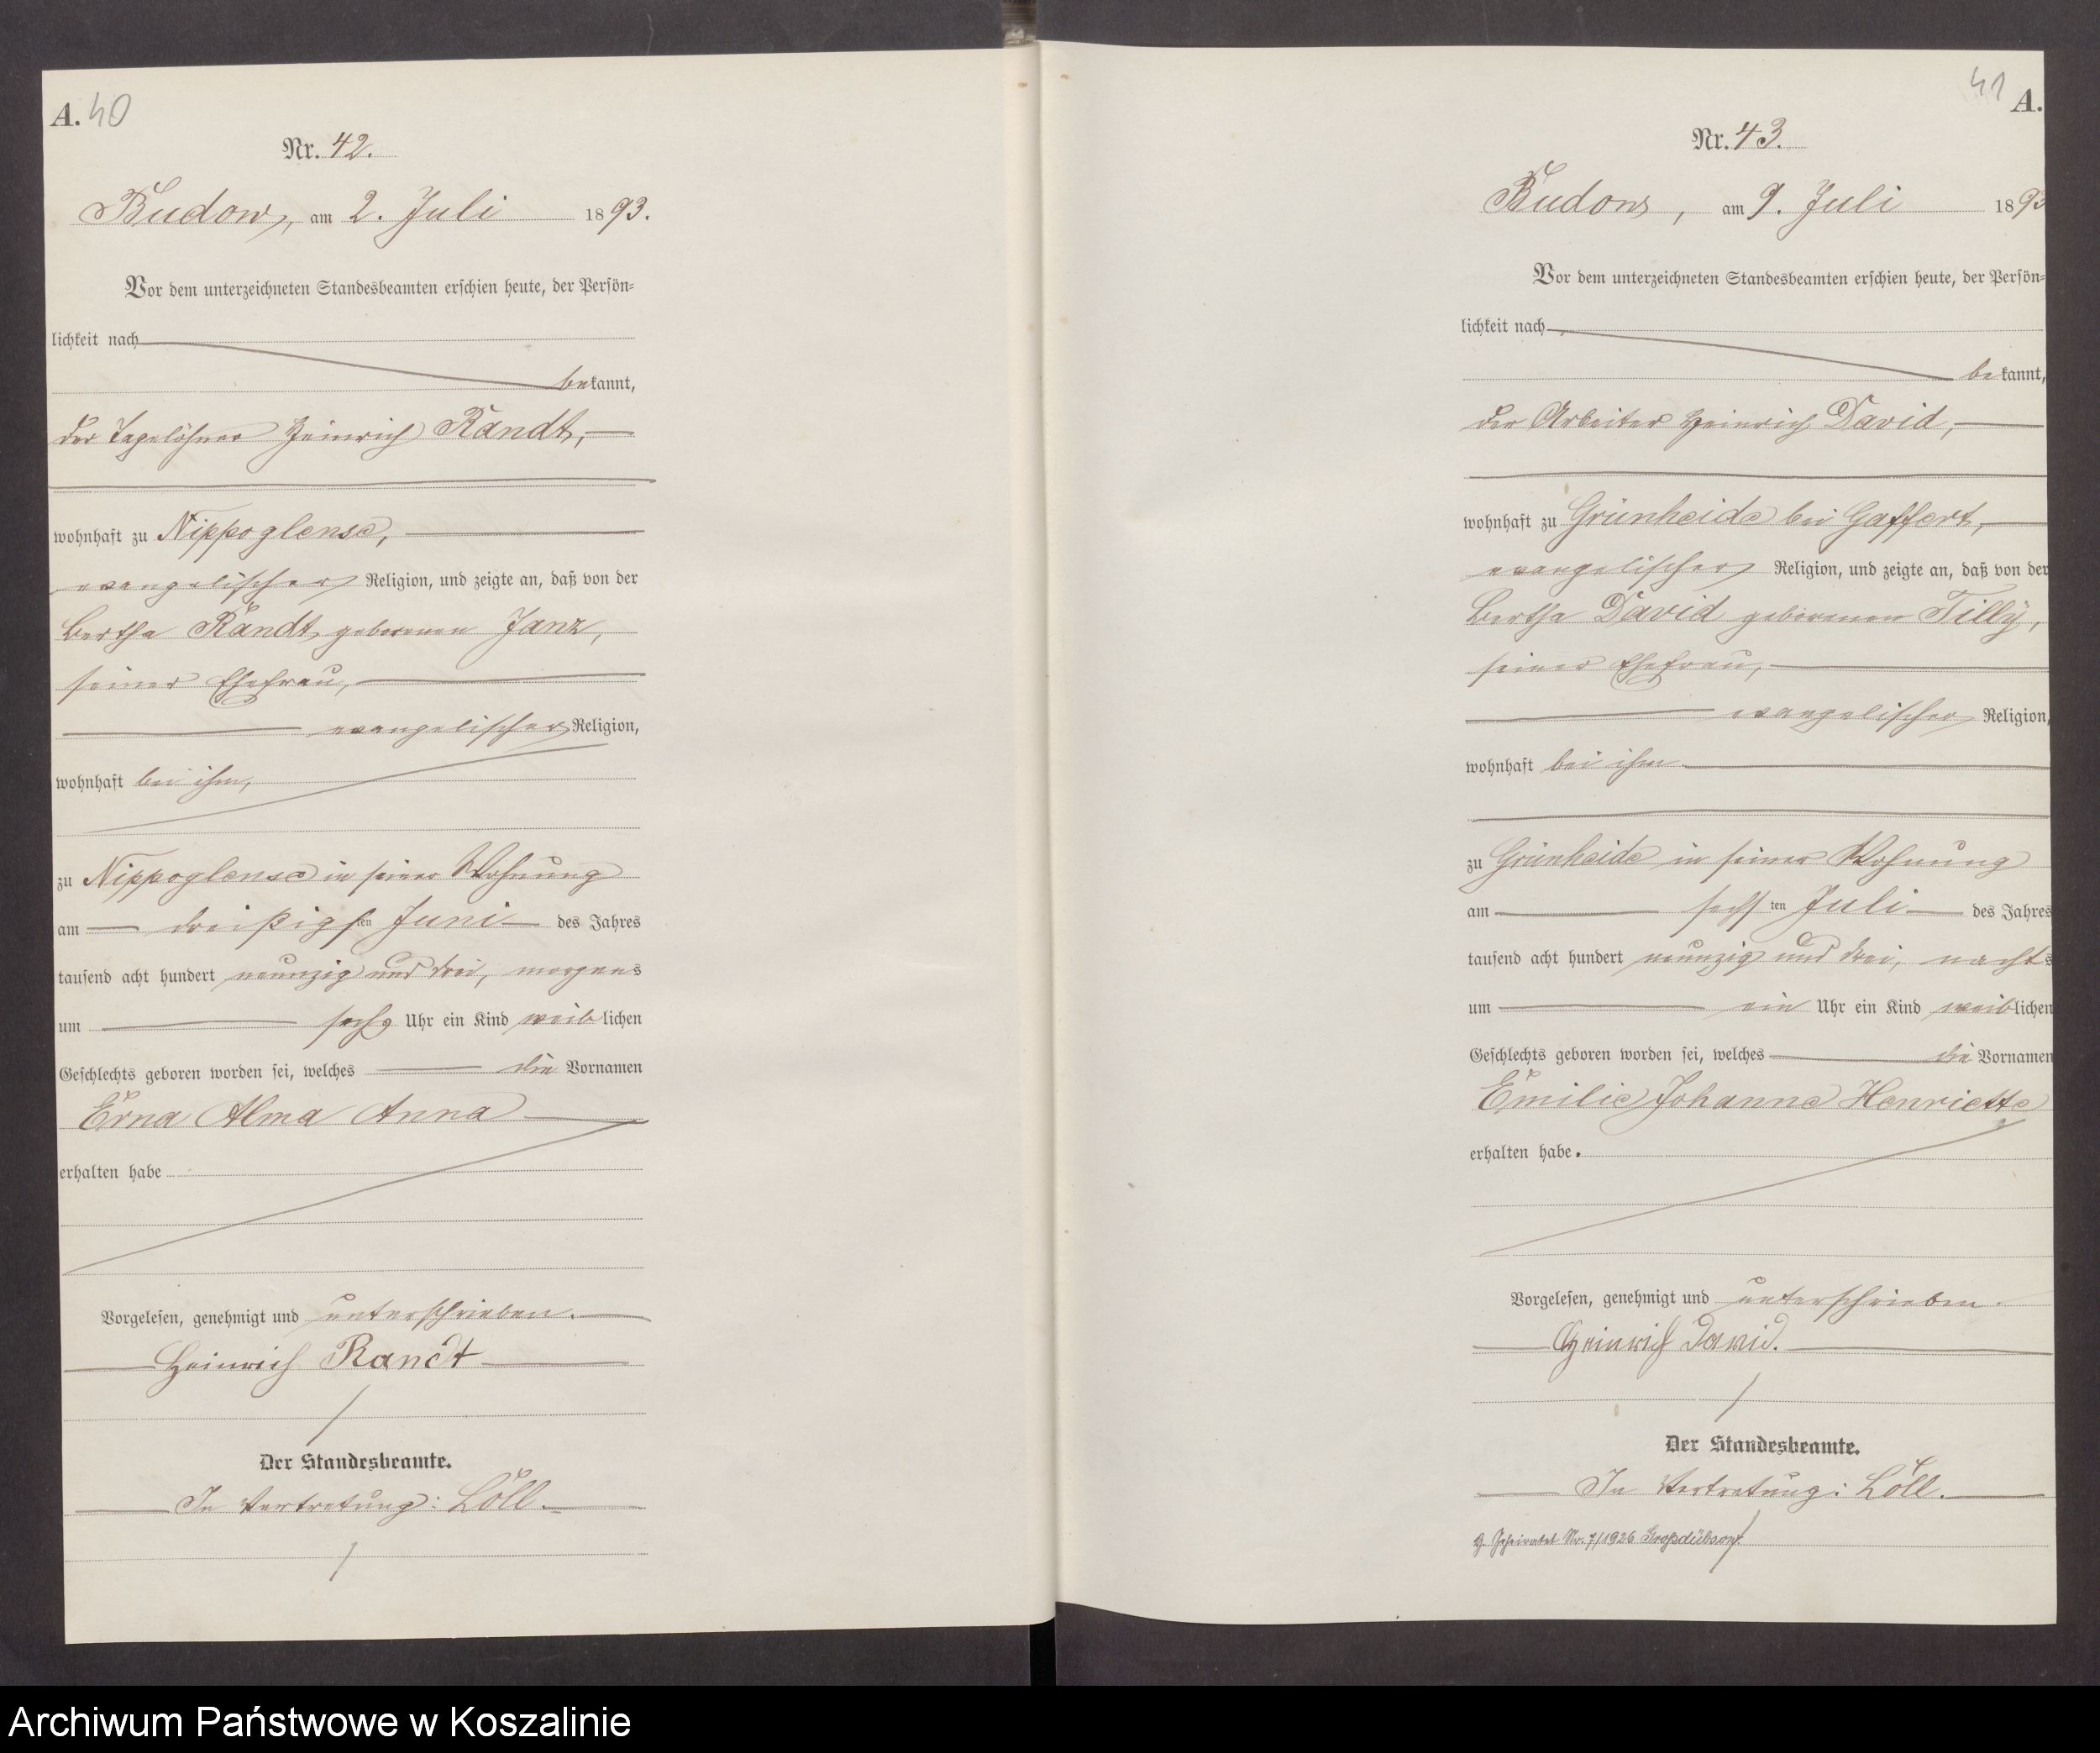 A. 40
Nr. 42.
Budow, am 2. Juli 1893.
Vor dem unterzeichneten Standesbeamten erschien heute, der Persön-
lichkeit nach
bekannt,
der Tagelöhner Heinrich Randt,
wohnhaft zu Nippoglense,
evangelischer Religion, und zeigte an, daß von der
Bertha Randt, geborenen Janz,
seiner Ehefrau,
evangelischer Religion,
wohnhaft bei ihm,
zu Nippoglense in seiner Wohnung
am dreißigsten Juni des Jahres
tausend acht hundert neunzig und drei, morgens
um sechs Uhr ein Kind weiblichen
Geschlechts geboren worden sei, welches die Vornamen
Erna Alma Anna
erhalten habe
Vorgelesen, genehmigt und unterschrieben.
Heinrich Randt
Der Standesbeamte.
In Vertretung: Löll.
41 A.
Nr. 43.
Budow, am 9. Juli 1893
Vor dem unterzeichneten Standesbeamten erschien heute, der Persön-
lichkeit nach
bekannt,
der Arbeiter Heinrich David,
wohnhaft zu Grünheide bei Gaffert,
evangelischer Religion, und zeigte an, daß von der
Bertha David geborenen Tilly,
seiner Ehefrau,
evangelischer Religion,
wohnhaft bei ihm
zu Grünheide in seiner Wohnung
am sechsten Juli des Jahres
tausend acht hundert neunzig und drei, nachts
um ein Uhr ein Kind weiblichen
Geschlechts geboren worden sei, welches die Vornamen
Emilie Johanne Henriette
erhalten habe.
Vorgelesen, genehmigt und unterschrieben.
Heinrich David.
Der Standesbeamte.
In Vertretung: Löll.
Geheiratet Nr. 7/1926 Großdübsow
Archiwum Państwowe w Koszalinie